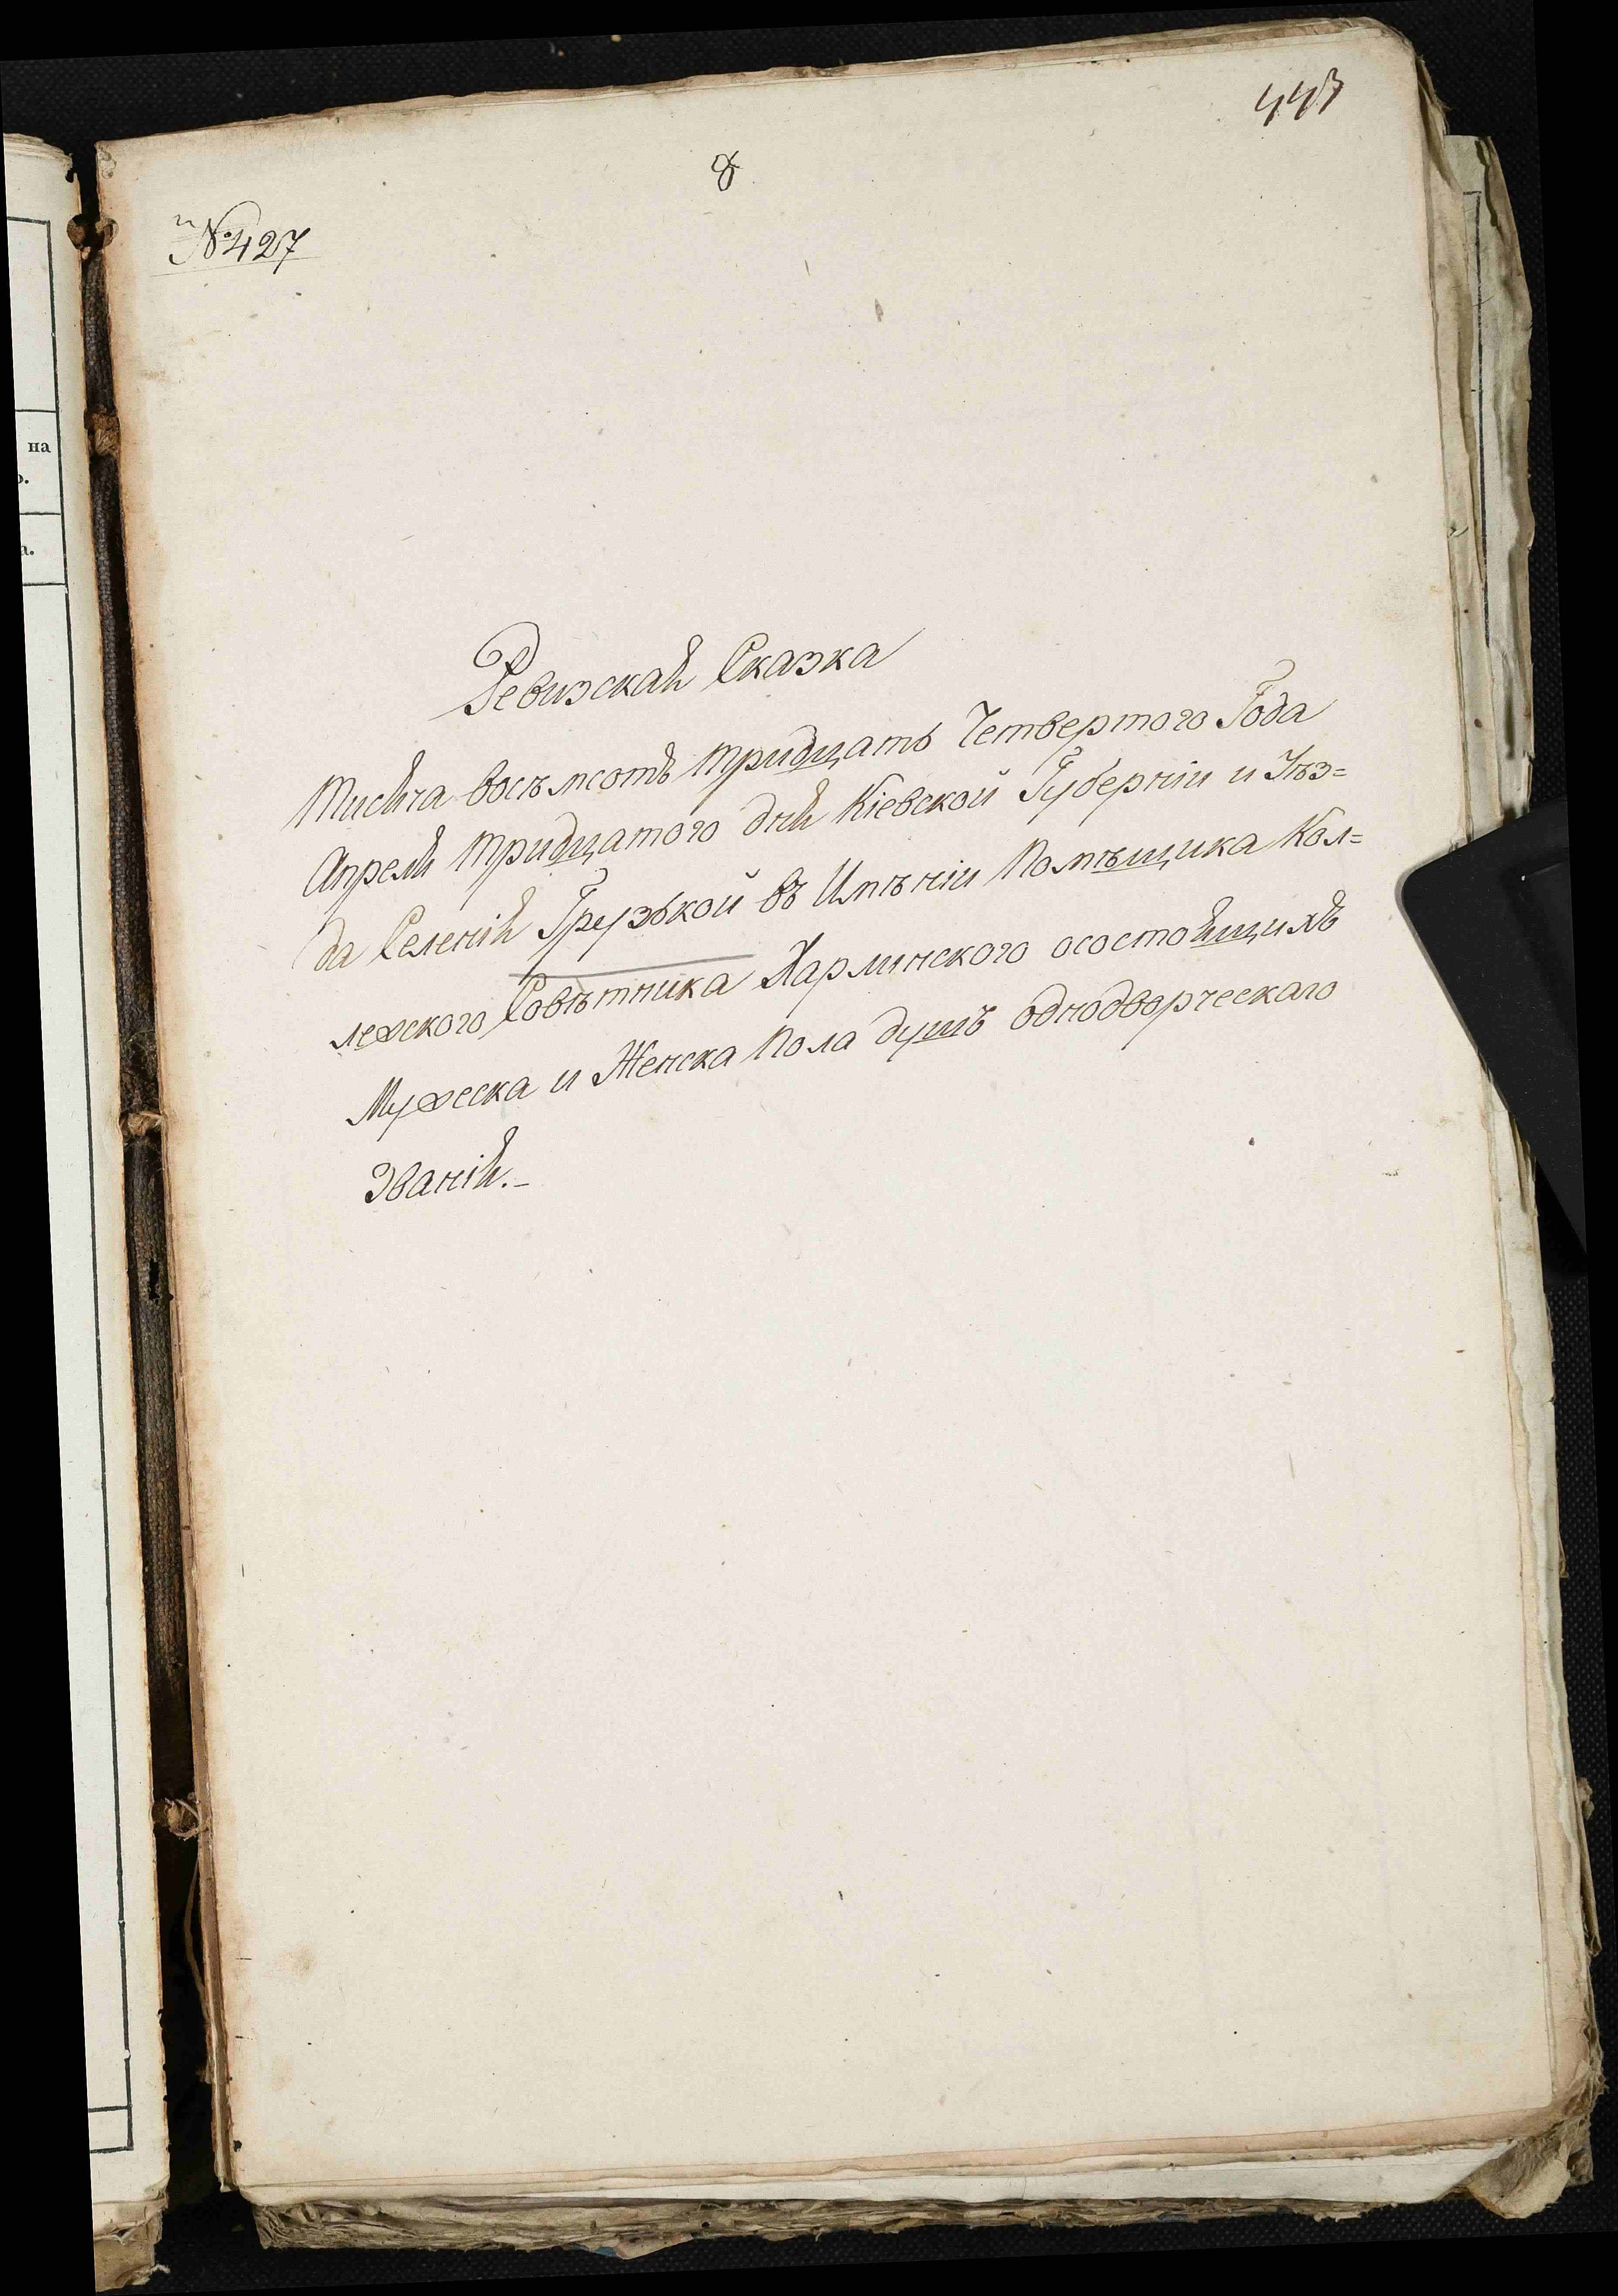 443
8
№ 427
на
Ревизская Сказка
Тисяча восъмсотъ тридцать Четвертого Года
Апреля тридцатого дня Кіевской Губерніи и Уѣз=
да Селенія Грузької въ Имѣніи Помѣщика Кол=
лежского Совѣтника Харлинского осостоящихъ
Мужеска и Женска Пола душъ однодворческаго
Званія.-